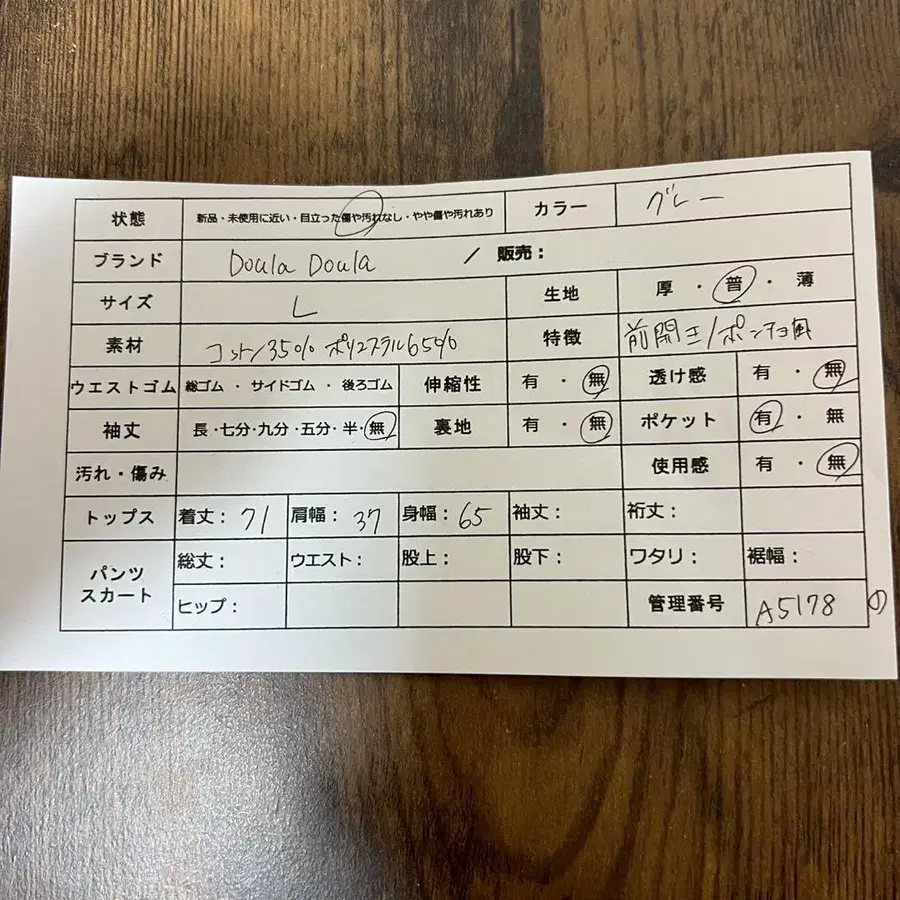 状態 新品・未使用に近い・目立った傷や汚れなし・やや傷や汚れあり カラー グレー
ブランド Doula Doula / 販売：
サイズ L 生地 厚・普・薄
素材 コットン35% ポリエステル65% 特徴 前開き/ポンチョ風
ウエストゴム 総ゴム・サイドゴム・後ろゴム 伸縮性 有・無 透け感 有・無
袖丈 長・七分・九分・五分・半・無 裏地 有・無 ポケット 有・無
汚れ・傷み 使用感 有・無
トップス 着丈：71 肩幅：37 身幅：65 袖丈： 裄丈：
パンツ スカート 総丈： ウエスト： 股上： 股下： ワタリ： 裾幅：
ヒップ： 管理番号 A5178 の